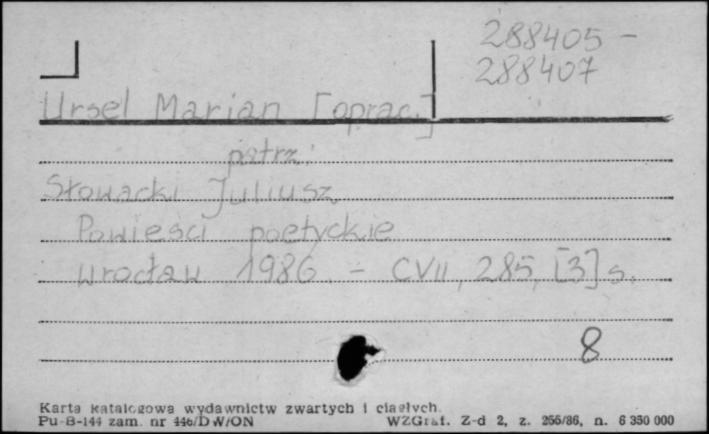 288405 -
288407
Ursel Marian [oprac.]
patrz:
Słowacki Juliusz
Powieści poetyckie
Wrocław 1986. - CVII, 285, [3] s.
8
Karta katalogowa wydawnictw zwartych i ciągłych.
Pu-B-144 zam. nr 446/DW/ON WZGraf. Z-d 2, z. 266/86, n. 6 350 000